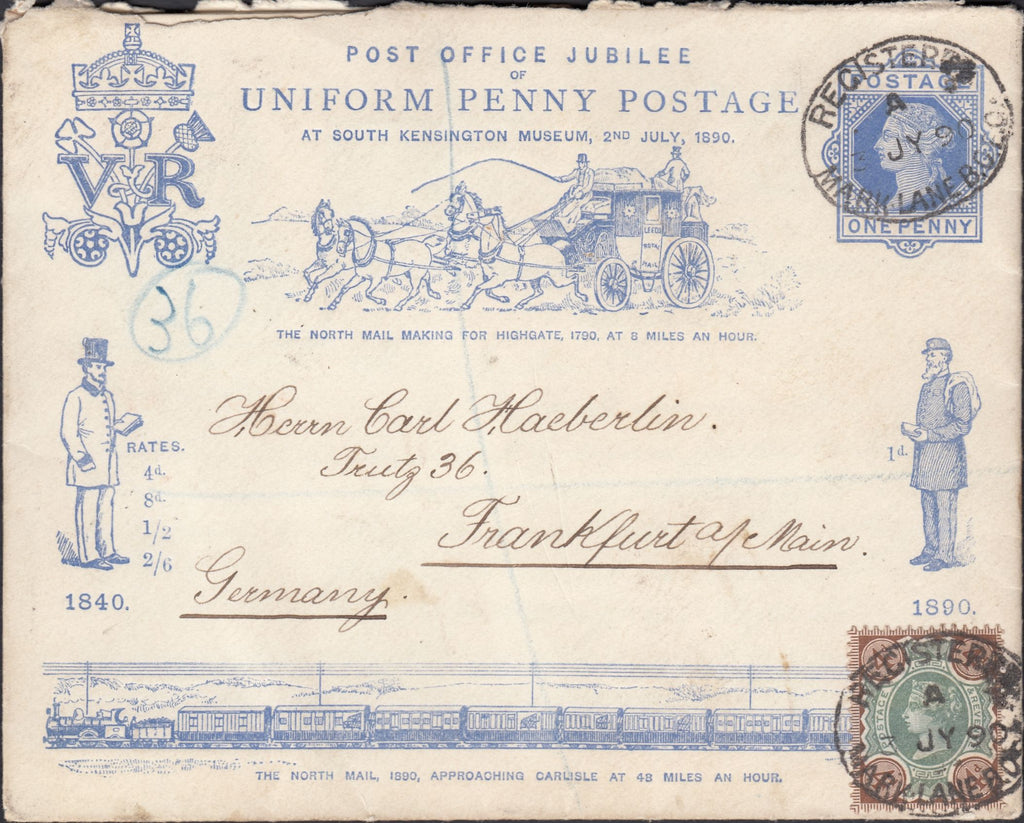 POST OFFICE JUBILEE
OF
UNIFORM PENNY POSTAGE
AT SOUTH KENSINGTON MUSEUM, 2ND JULY, 1890.
VR
REGISTERED
A
JY 90
MARK LANE B.O.
POSTAGE
ONE PENNY
LEEDS
ROYAL
MAIL
THE NORTH MAIL MAKING FOR HIGHGATE, 1790, AT 8 MILES AN HOUR.
36
Herrn Carl Haeberlin.
Trutz 36.
Frankfurt a/Main.
Germany.
RATES.
4d.
8d.
1/2
2/6
1840.
1d.
1890.
REGISTERED
A
JY 90
MARK LANE B.O.
POSTAGE
THE NORTH MAIL, 1890, APPROACHING CARLISLE AT 48 MILES AN HOUR.